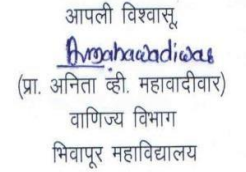 आपली विश्वासू,
Avmahawadiwar
(प्रा. अनिता व्ही. महावादीवार)
वाणिज्य विभाग
भिवापूर महाविद्यालय